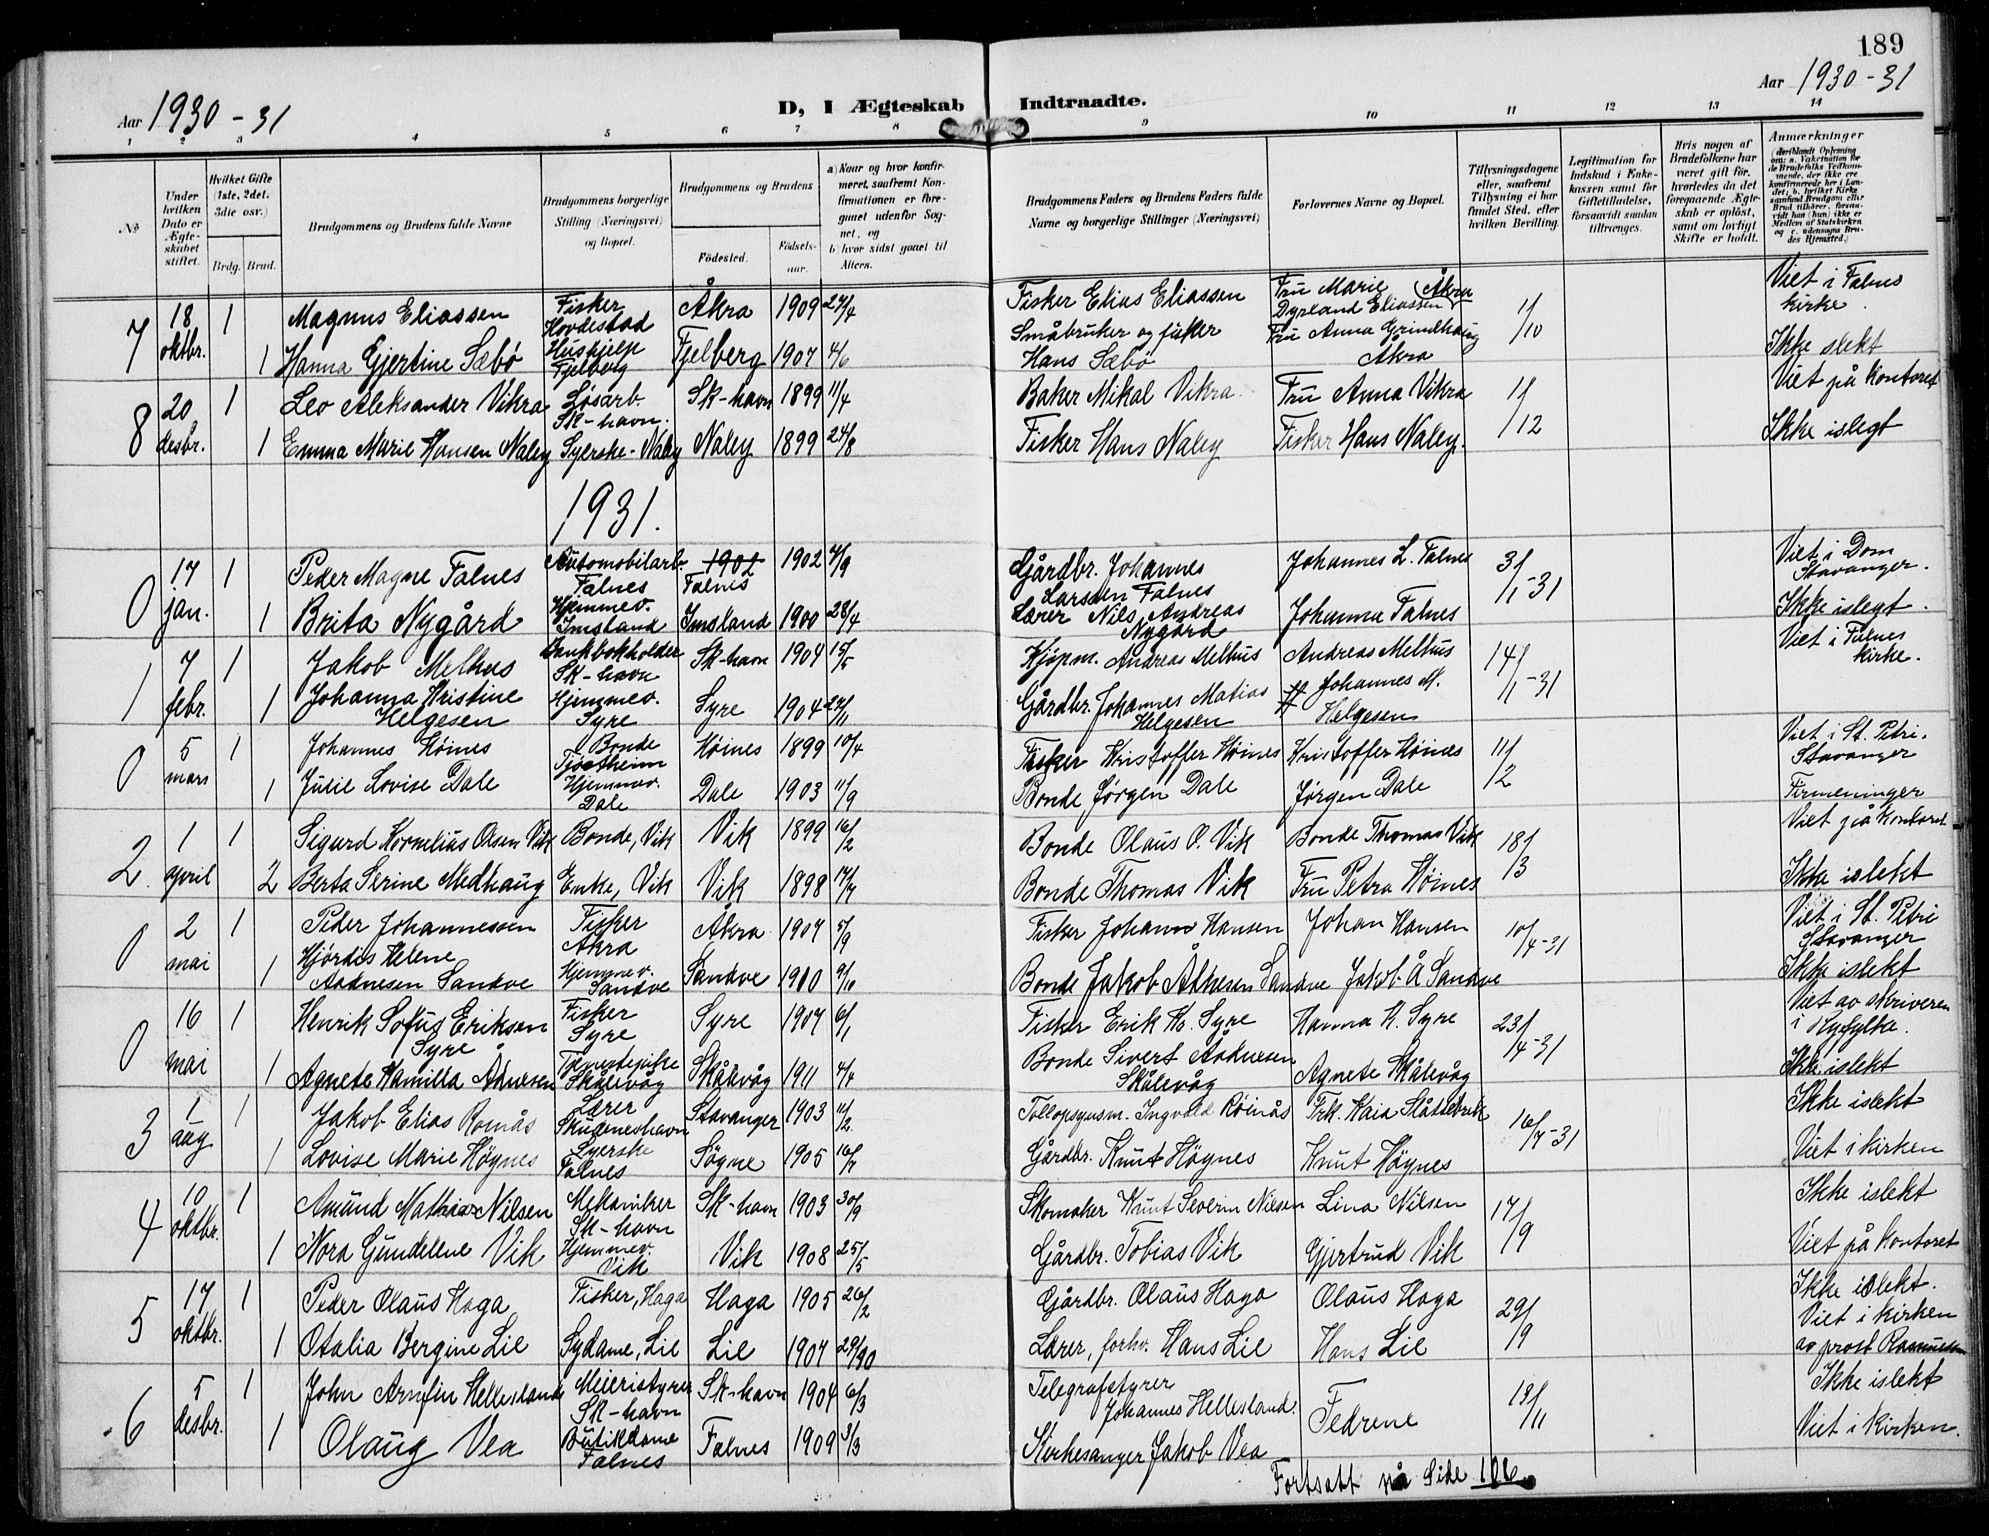 189
Aar 1930-31
Aar 1930-31
D, I Ægteskab Indtraadte.
1 2 3 4 5 6 7 8 9 10 11 12 13 14
No
Under hvilken Dato er Ægteskabet stiftet.
Hvilket Gifte (1ste, 2det. 3die osv.)
Brdg. Brud.
Brudgommens og Brudens fulde Navne
Brudgommens borgerlige Stilling (Næringsvei) og Bopæl.
Brudgommens og Brudens
Fødested.
Fødselsaar.
a) Naar og hvor konfirmeret, saafremt Konfirmationen er foregaaet udenfor Sognet, og
b) hvor sidst gaaet til Alters.
Brudgommens Faders og Brudens Faders fulde Navne og borgerlige Stillinger (Næringsvei)
Forlovernes Navne og Bopæl.
Tillysningsdagene eller, saafremt Tillysning ei har fundet Sted, efter hvilken Bevilling.
Legitimation for Indskud i Enkekassen samt for Giftetilladelse, forsaavidt saadan tiltrænges.
Hvis nogen af Brudefolkene har været gift før, hvorledes da det foregaaende Ægteskab er opløst, samt om lovligt Skifte er holdt.
Anmærkninger
7 18 oktbr. 1 Magnus Eliassen Fisker Hovdestad Åkra 1909 27/4 Fisker Elias Eliassen Fru Marie Dyrland Eliassen Åkra 1/10 Viet i Falnes kirke.
1 Hanna Gjertine Sæbø Hushjelp Fjelberg Fjelberg 1907 4/6 Småbruker og fisker Hans Sæbø Fru Anna Grindhaug Åkra Ikke slekt
8 20 desbr. 1 Leo Aleksander Vikra Løsarb Sk-havn. Sk-havn 1899 11/4 Baker Mikal Vikra Fru Anna Vikra 1/12 Viet på kontoret
1 Emma Marie Hansen Naley Syerske-Naley Naley 1899 24/8 Fisker Hans Naley Fisker Hans Naley. Ikke islegt
1931.
0 17 jan. 1 Peder Magne Falnes Automobilarb. Falnes 1901 Falnes 1902 4/9 Gårdbr. Johannes Larssen Falnes Johannes L. Falnes 3/1-31 Viet i Dom Stavanger.
1 Brita Nygård Hjemmev. Imsland Imsland 1900 28/4 Lærer Nils Andreas Nygård Johanna Falnes Ikke islegt.
1 7 febr. 1 Jakob Melhus Bankbokholder Sk-havn Sk-havn 1904 15/5 Kjøpm. Andreas Melhus Andreas Melhus 14/1-31 Viet i Falnes kirke.
1 Johanna Kristine Helgesen Hjemmev. Syre Syre 1904 27/11 Gårdbr. Johannes Matias Helgesen Johannes M. Helgesen
0 5 mars 1 Johannes Høines Bonde Tjøstheim Høines 1899 10/4 Fisker Kristoffer Høines Kristoffer Høines 11/2 Viet i St. Petri. Stavanger
1 Julie Lovise Dale Hjemmev. Dale Dale 1903 11/9 Bonde Jørgen Dale Jørgen Dale Firmeninger
2. 1 april 1 Sigurd Kornelius Olsen Vik Bonde, Vik Vik 1899 16/2 Bonde Olaus O. Vik Bonde Thomas Vik 18/3 Viet på kontoret
2 Berta Serine Medhaug Enke, Vik Vik 1898 17/7 Bonde Thomas Vik Fru Petra Høines Ikke islekt
0 2 mai 1 Peder Johannessen Fisker Åkra Åkra 1907 5/9 Fisker Johan Hansen Johan Hansen 10/4-31 Viet i St. Petri Stavanger
1 Hjørdis Helene Aadnesen Sandve Hjemmev. Sandve Sandve 1910 9/10 Bonde Jakob Ådnesen Sandve Jakob Å Sandve Ikke islekt
0 16 mai 1 Henrik Sofus Eriksen Syre Fisker Syre Syre 1907 6/1 Fisker Erik H. Syre Hanna H. Syre 23/4-31 Viet av skriveren i Ryfylke.
1 Agnete Kamilla Ådnesen Tjenestepike Skålevåg Skålevåg 1911 4/4 Bonde Sivert Aadnesen Skålevåg Agnete Skålevåg Ikke islekt
3 1 aug 1 Jakob Elias Romås Lærer Skudeneshavn Stavanger 1903 11/2 Tollopsynsm. Ingvald Røinås Frk. Kaia Slåttebrek 16/7-31 Ikke islekt
1 Lovise Marie Høynes Syerske Falnes Søgne 1905 16/7 Gårdbr. Knut Høynes Knut Høynes Viet i kirken
4 10 oktbr. 1 Amund Mathias Nilsen Mekaniker Sk-havn Sk-havn 1903 30/9 Skomaker Knut Severin Nilsen Lina Nilsen 17/9 Ikke islekt
1 Nora Gundelene Vik Hjemmev. Vik Vik 1908 25/5 Gårdbr. Tobias Vik Gjertrud Vik Viet på kontoret
5 17 oktbr. 1 Peder Olaus Haga Fisker, Haga Haga 1905 26/2 Gårdbr. Olaus Haga Olaus Haga 29/9 Ikke islekt.
1 Otalia Bergine Lie Sydame, Lie Lie 1907 29/90 Lærer, forhv. Hans Lie Hans Lie Viet i kirken av prost Rasmussen
6 5 desbr. 1 John Arnfin Hellesland Meieristyrer Sk-havn Sk-havn 1904 6/3 Telegrafstyrer Johannes Hellesland. Fedrene 13/11 Ikke islekt
1 Olaug Vea Butikdame Falnes Falnes 1909 3/3 Kirkesanger Jakob Vea Viet i kirken.
Fortsatt på Side 186